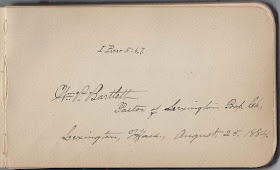 I Peter 5:6,7.
Wm. P. Bartlett
Pastor of Lexington Bap. Ch.,
Lexington, Mass., August, 25, 188